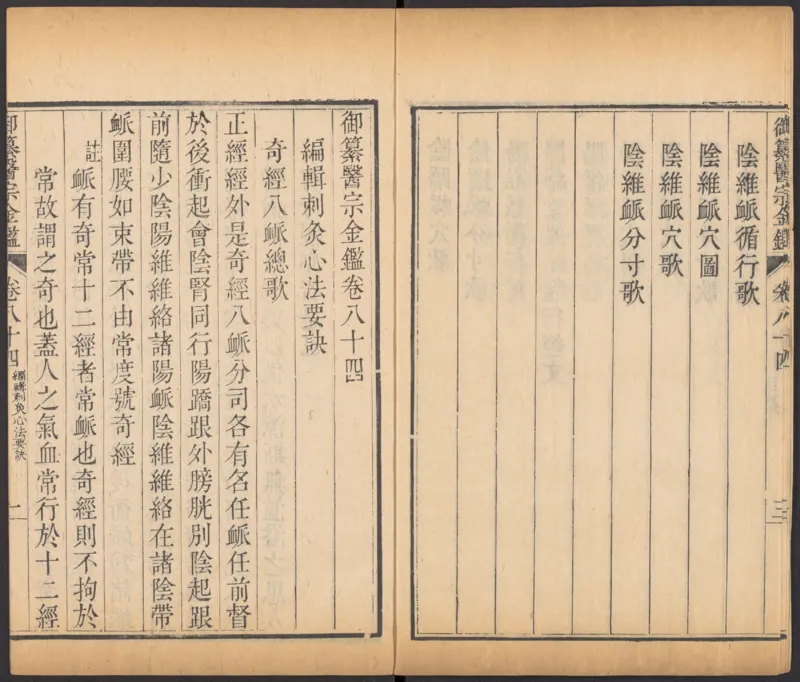 御纂醫宗金鑑
卷八十四
陰維䘑循行歌
陰維䘑穴圖
陰維䘑穴歌
陰維䘑分寸歌
御纂醫宗金鑑卷八十四
編輯刺灸心法要訣
奇經八䘑總歌
正經經外是奇經八䘑分司各有名任䘑任前督
於後衝起會陰腎同行陽蹻跟外膀胱別陰起跟
前隨少陰陽維維絡諸陽䘑陰維維絡在諸陰帶
䘑圍腰如束帶不由常度號奇經
註䘑有奇常十二經者常䘑也奇經則不拘於
常故謂之奇也蓋人之氣血常行於十二經
御纂醫宗金鑑
卷八十四
編輯刺灸心法要訣
一